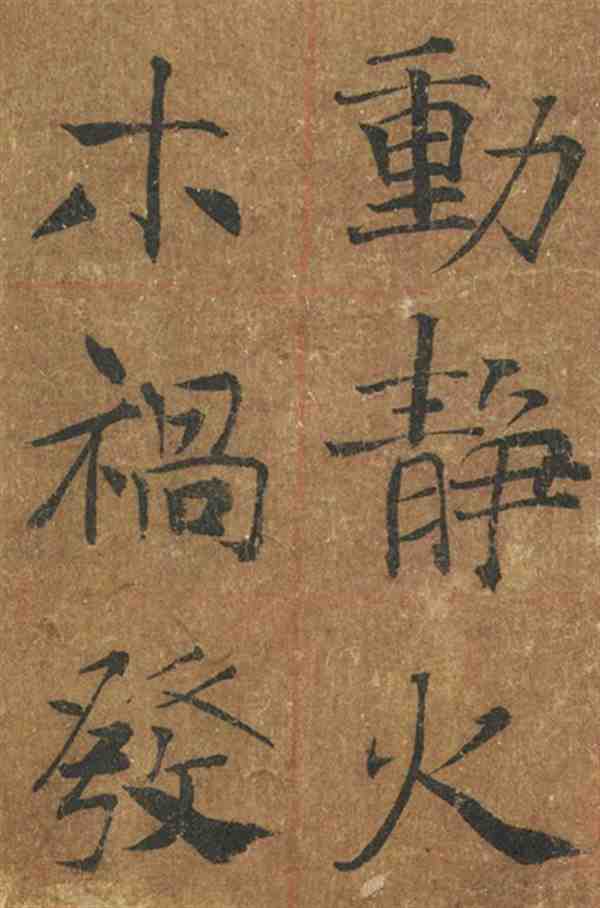 動静火
木禍發